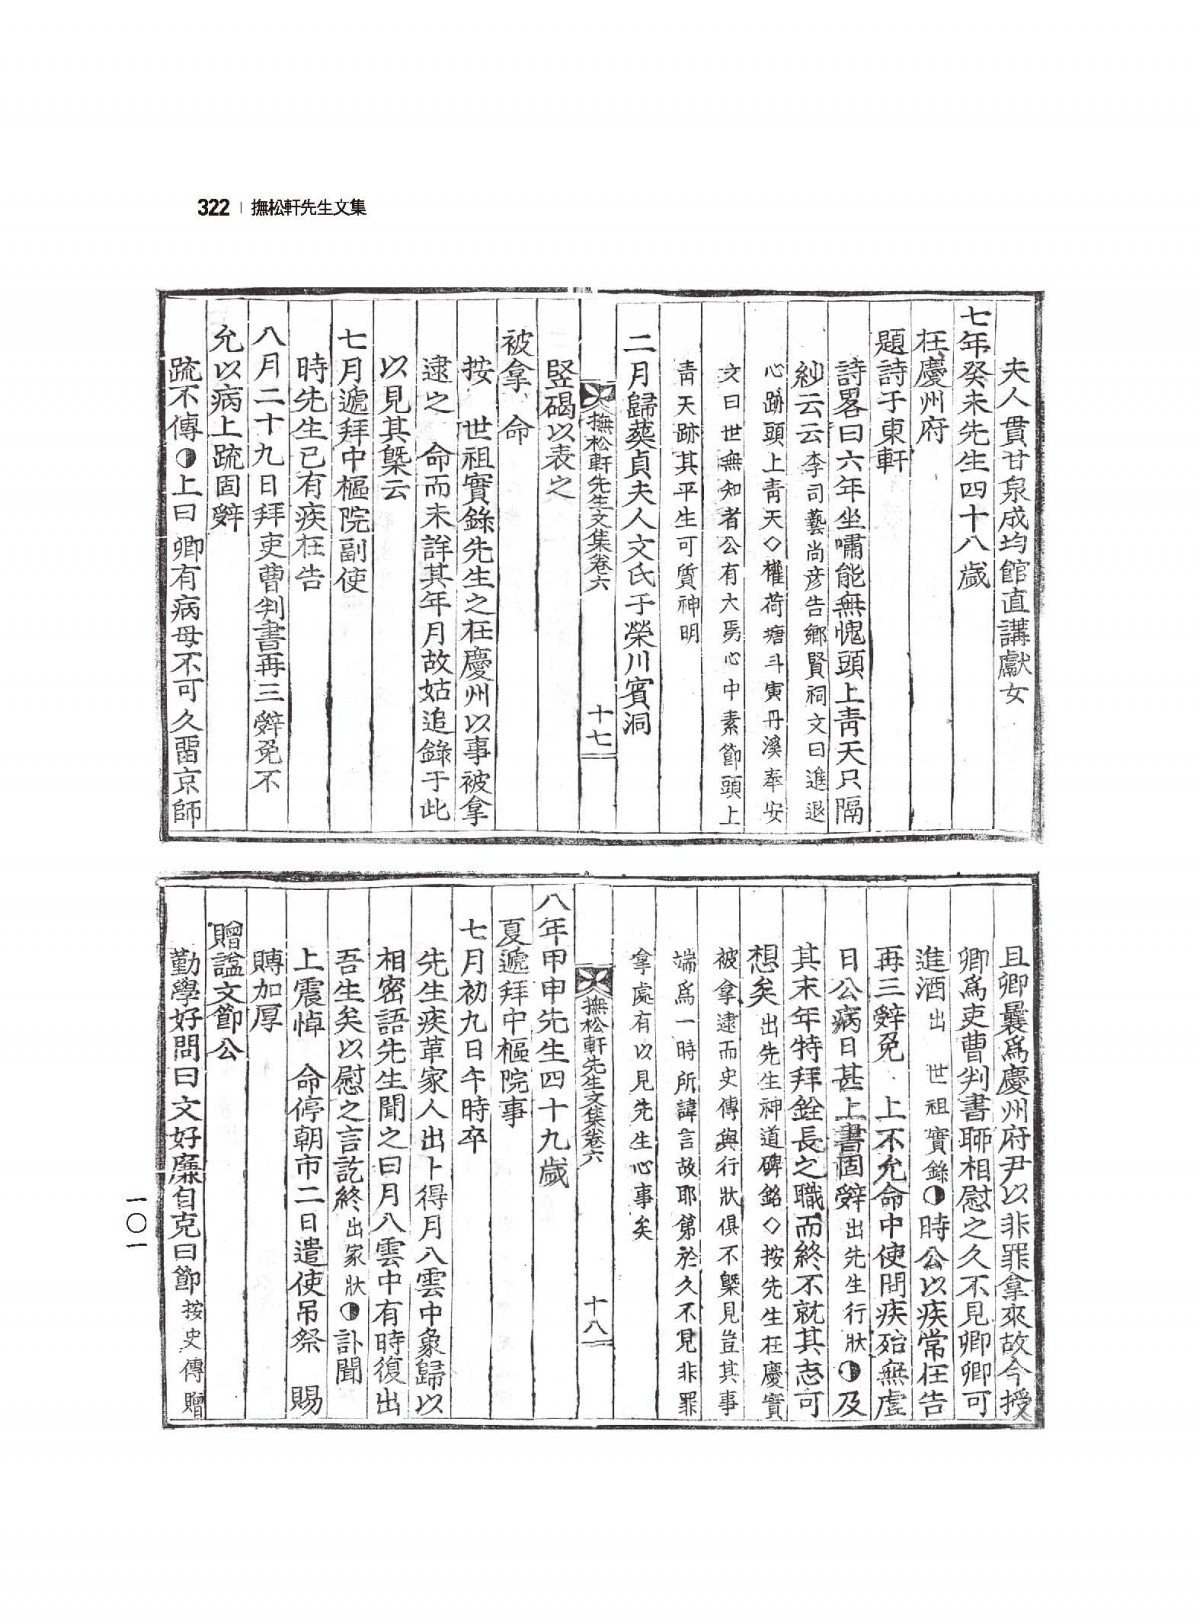 322 | 撫松軒先生文集
夫人貫甘泉成均館直講獻女
七年癸未先生四十八歲
在慶州府
題詩于東軒
詩畧曰六年坐嘯能無愧頭上靑天只隔
紗云云李司藝尚彦告鄕賢祠文曰進退
心跡頭上靑天◇權荷塘斗寅丹溪奉安
文曰世無知者公有大焉心中素節頭上
靑天跡其平生可質神明
二月歸葬貞夫人文氏于榮川賓洞
撫松軒先生文集卷六 十七
竪碣以表之
被拿 命
按 世祖實錄先生之在慶州以事被拿
逮之 命而未詳其年月故姑追錄于此
以見其槩云
七月遞拜中樞院副使
時先生已有疾在告
八月二十九日拜吏曹判書再三辭免不
允以病上疏固辭
疏不傳◑上曰卿有病母不可久畱京師
且卿曩爲慶州府尹以非罪拿來故今授
卿爲吏曹判書聊相慰之久不見卿卿可
進酒出 世祖實錄◑時公以疾常在告
再三辭免 上不允命中使問疾殆無虛
日公病日甚上書固辭出先生行狀◑及
其末年特拜銓長之職而終不就其志可
想矣出先生神道碑銘◇按先生在慶實
被拿逮而史傳與行狀俱不槩見豈其事
端爲一時所諱言故耶第於久不見非罪
拿處有以見先生心事矣
撫松軒先生文集卷六 十八
八年甲申先生四十九歲
夏遞拜中樞院事
七月初九日午時卒
先生疾革家人出卜得月八雲中象歸以
相密語先生聞之曰月八雲中有時復出
吾生矣以慰之言訖終出家狀◑訃聞
上震悼 命停朝市二日遣使吊祭 賜
賻加厚
贈諡文節公
勤學好問曰文好廉自克曰節按史傳贈
一〇一